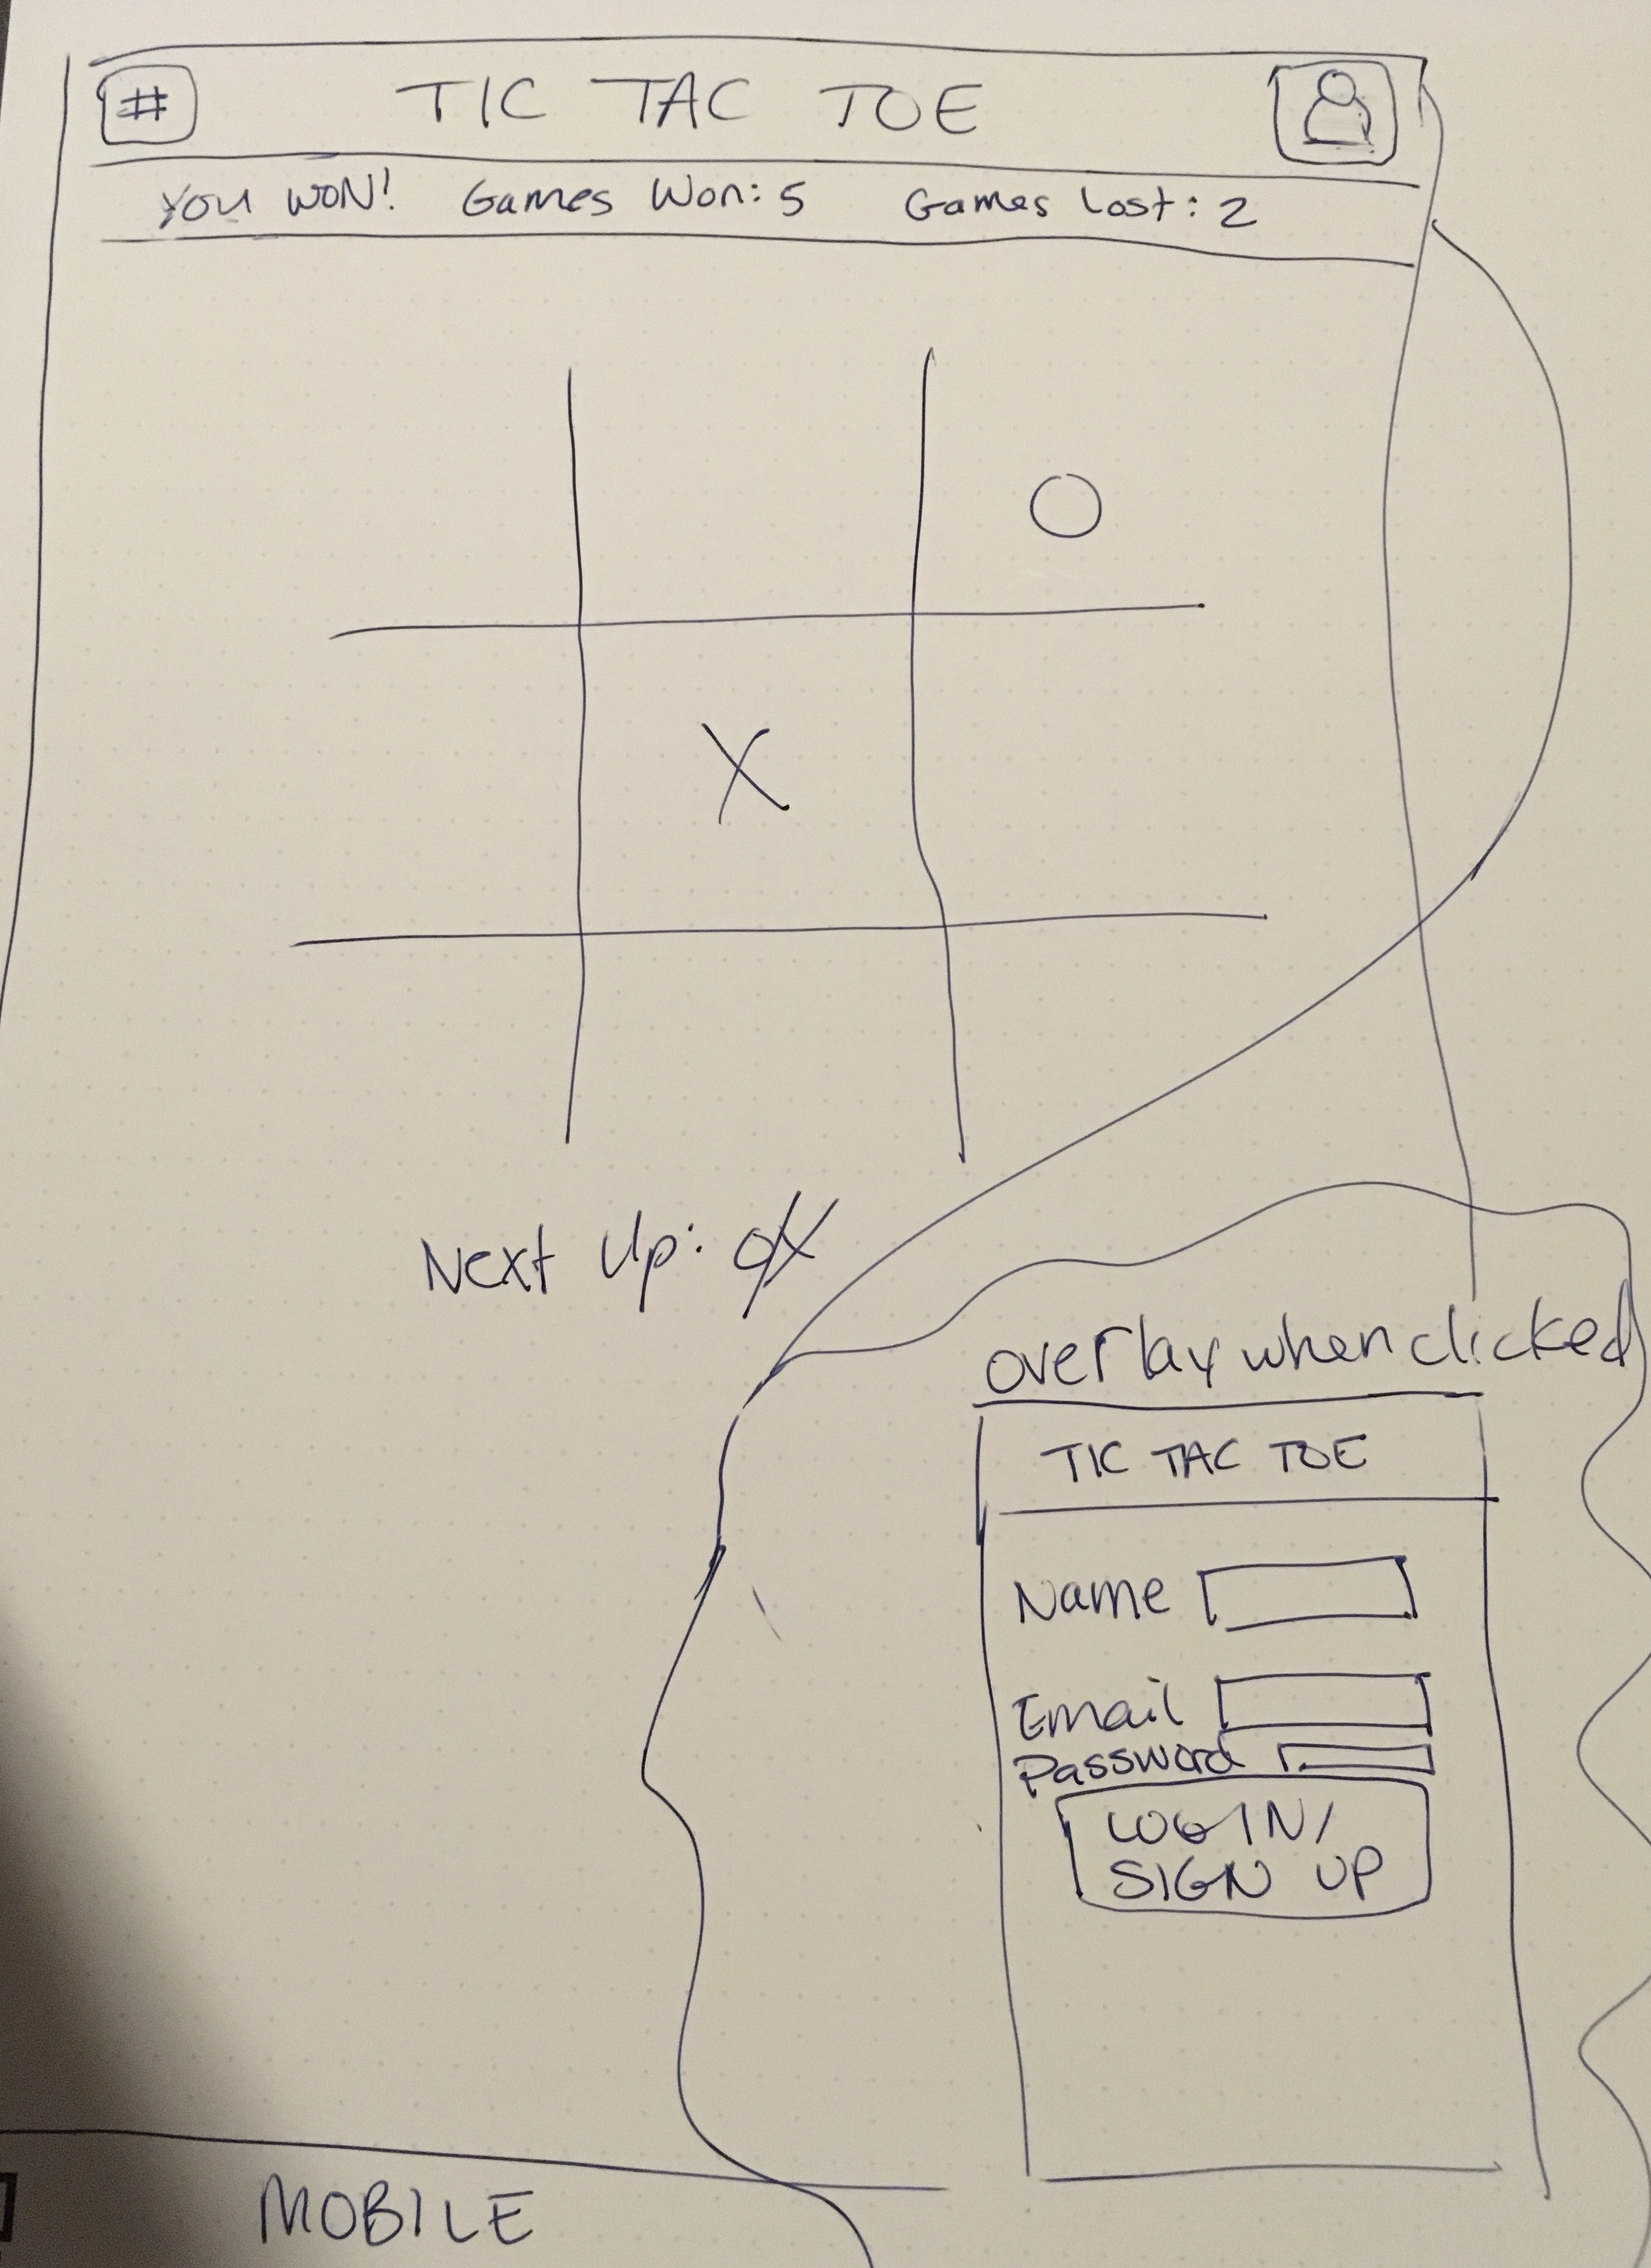 # TIC TAC TOE
YOU WON! Games Won: 5 Games Lost: 2
O
X
Next Up: O/X
overlay when clicked
TIC TAC TOE
Name
Email
Password
LOGIN/
SIGN UP
MOBILE